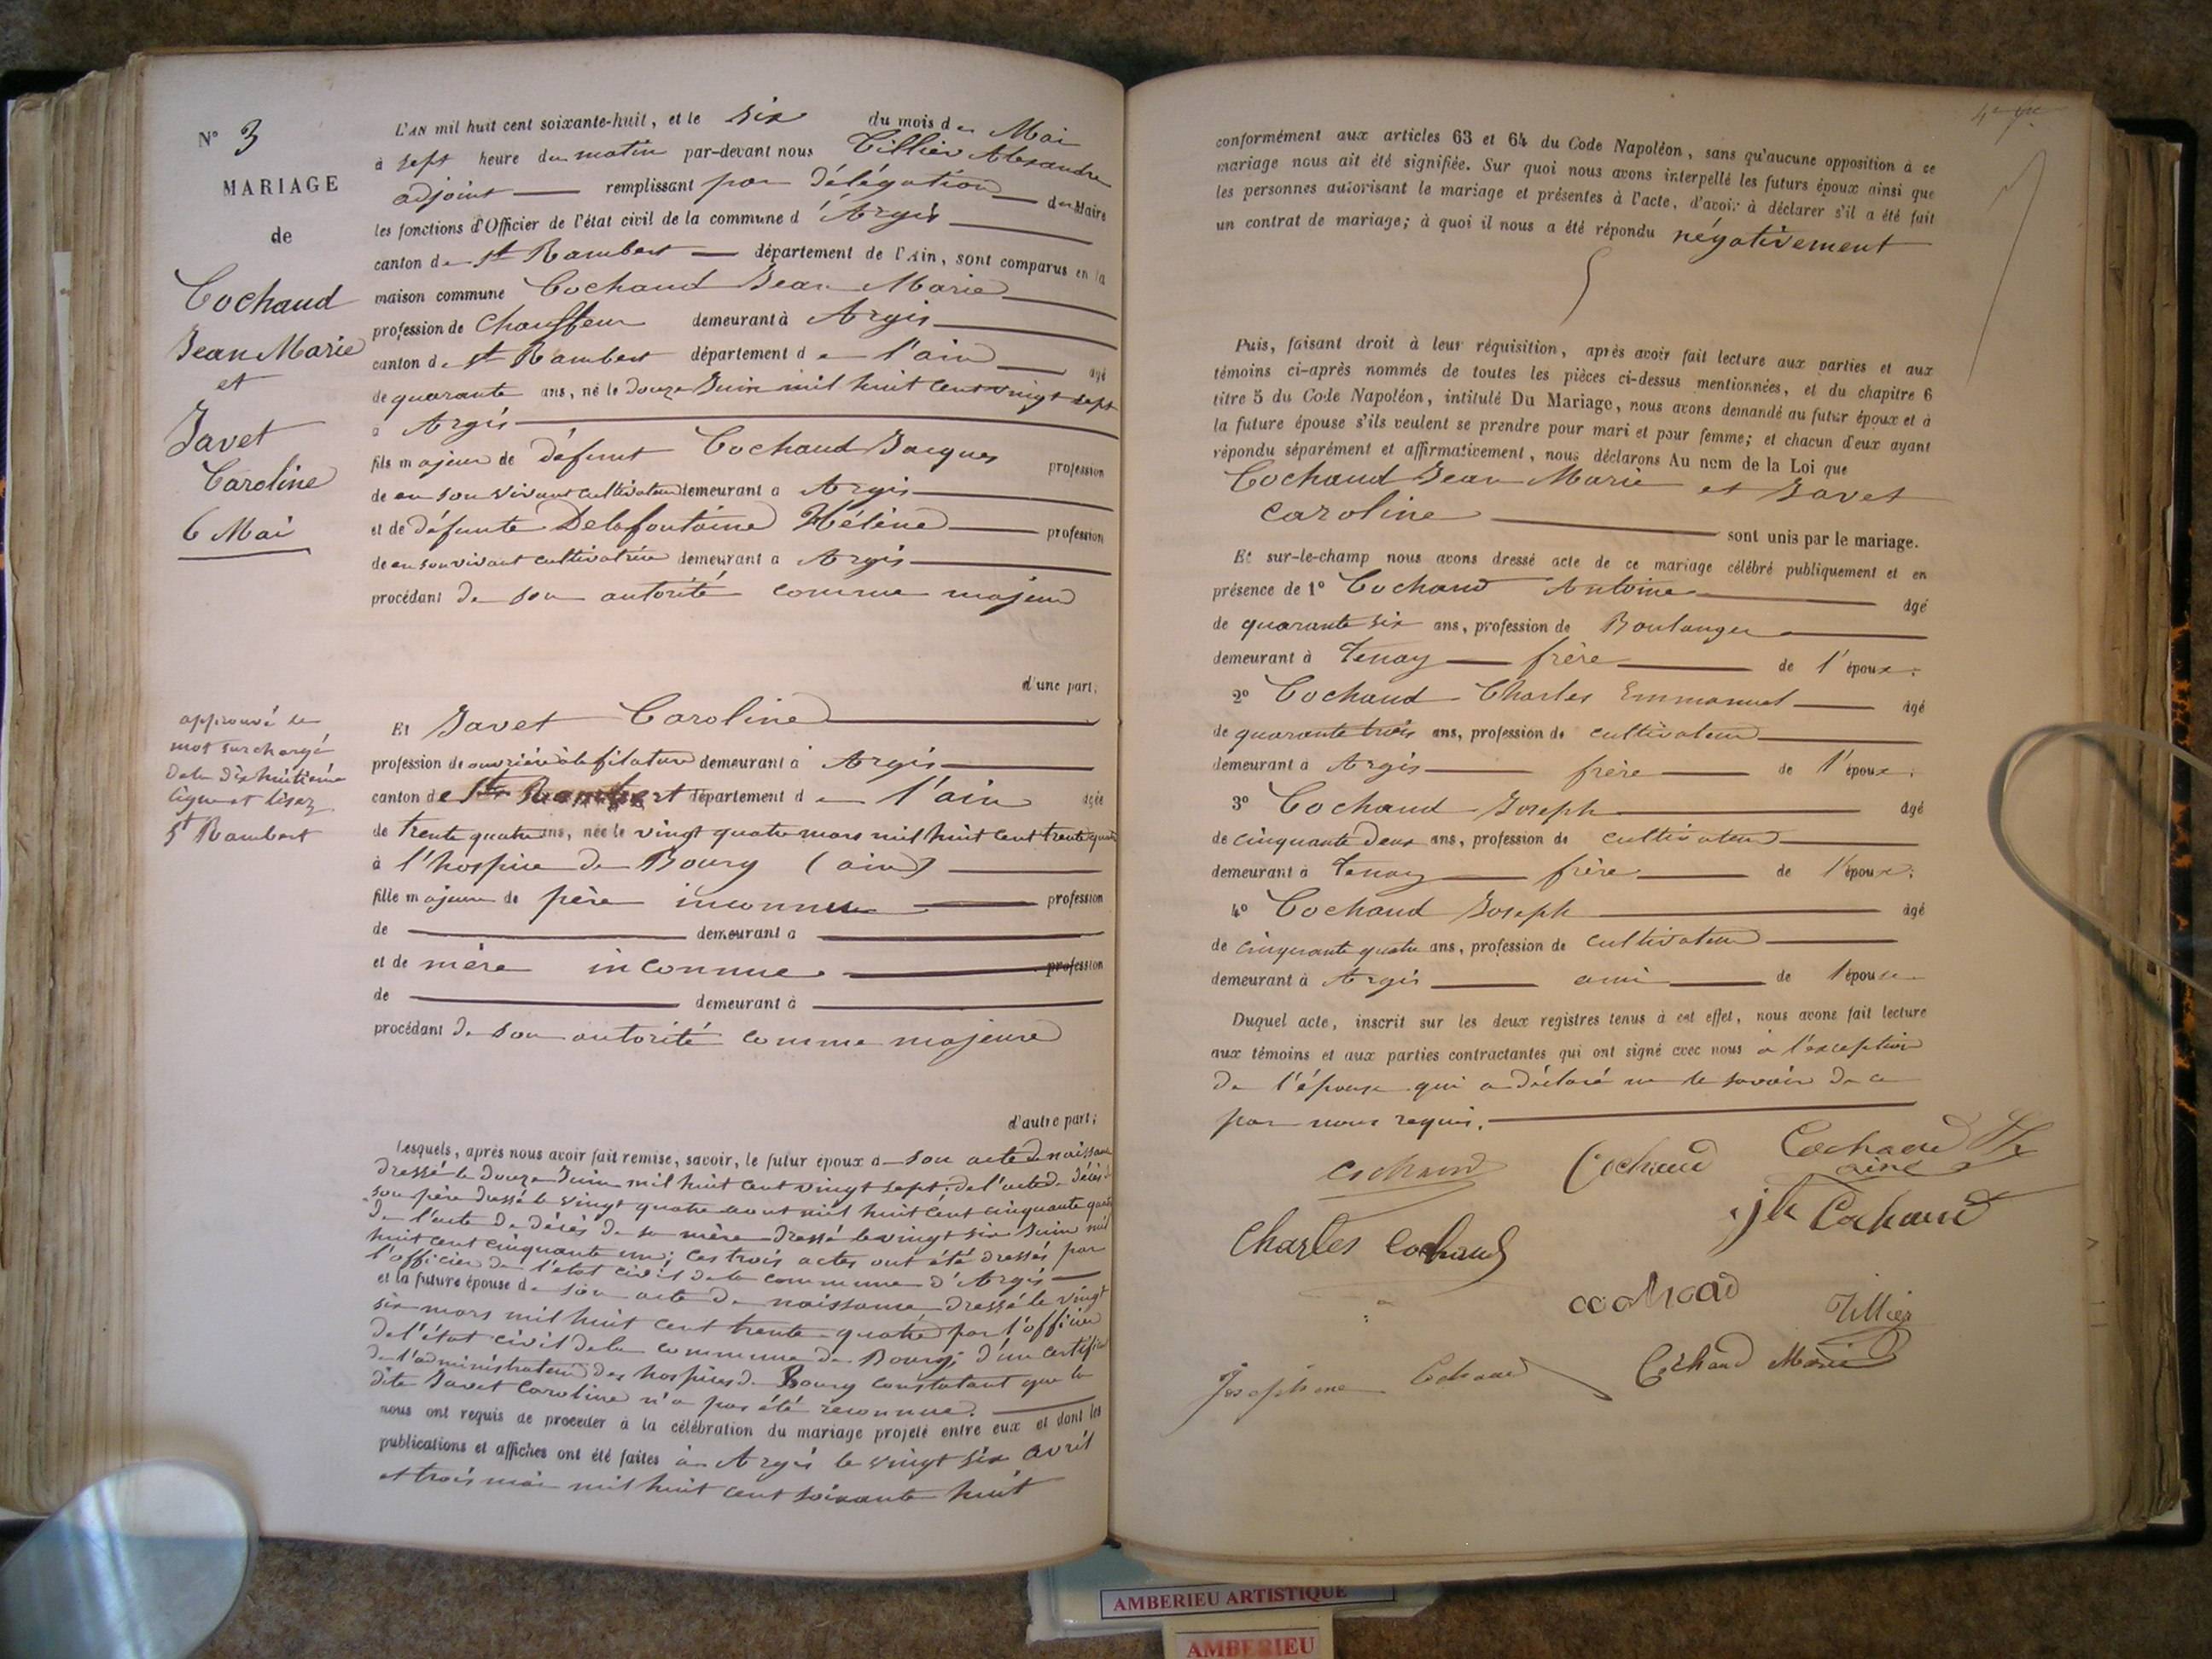 N° 3
MARIAGE
de
Cochaud
Jean Marie
et
Javet
Caroline
6 Mai
approuvé le
mot surchargé
de la dixhuitième
ligne et lisez
St Rambert
L'AN mil huit cent soixante-huit, et le six du mois de Mai
à sept heure du matin par-devant nous Tillier Alexandre
adjoint remplissant par délégation du Maire
les fonctions d'Officier de l'état civil de la commune d'Argis
canton de St Rambert département de l'Ain, sont comparus en la
maison commune Cochaud Jean Marie
profession de Chauffeur demeurant à Argis
canton de St Rambert département de l'ain âgé
de quarante ans, né le douze Juin mil huit cent vingt sept
à Argis
fils majeur de défunt Cochaud Jacques profession
de en son vivant cultivateur demeurant à Argis
et de défunte Delafontaine Hélène profession
de en son vivant cultivatrice demeurant à Argis
procédant de son autorité comme majeur
d'une part;
Et Javet Caroline
profession de ouvrière à la filature demeurant à Argis
canton de St Rambert département de l'ain âgée
de trente quatre ans, née le vingt quatre mars mil huit cent trente quatre
à l'hospice de Bourg (ain)
fille majeure de père inconnu profession
de demeurant à
et de mère inconnue profession
de demeurant à
procédant de son autorité comme majeure
d'autre part;
Lesquels, après nous avoir fait remise, savoir, le futur époux d son acte de naissance
dressé le douze Juin mil huit cent vingt sept; de l'acte de décès de
son père dressé le vingt quatre aout mil huit cent cinquante quatre
de l'acte de décès de sa mère dressé le vingt six Juin mil
huit cent cinquante un; ces trois actes ont été dressés par
l'officier de l'état civil de la commune d'Argis
et la future épouse de son acte de naissance dressé le vingt
six mars mil huit cent trente-quatre par l'officier
de l'état civil de la commune de Bourg; d'un certificat
de l'administrateur des hospices de Bourg constatant que la
dite Javet Caroline n'a pas été reconnue.
nous ont requis de procéder à la célébration du mariage projeté entre eux et dont les
publications et affiches ont été faites à Argis le vingt six avril
et trois mai mil huit cent soixante huit
conformément aux articles 63 et 64 du Code Napoléon, sans qu'aucune opposition à ce
mariage nous ait été signifiée. Sur quoi nous avons interpellé les futurs époux ainsi que
les personnes autorisant le mariage et présentes à l'acte, d'avoir à déclarer s'il a été fait
un contrat de mariage; à quoi il nous a été répondu négativement
Puis, faisant droit à leur réquisition, après avoir fait lecture aux parties et aux
témoins ci-après nommés de toutes les pièces ci-dessus mentionnées, et du chapitre 6
titre 5 du Code Napoléon, intitulé Du Mariage, nous avons demandé au futur époux et à
la future épouse s'ils veulent se prendre pour mari et pour femme; et chacun d'eux ayant
répondu séparément et affirmativement, nous déclarons Au nom de la Loi que
Cochaud Jean Marie et Javet
Caroline sont unis par le mariage.
Et sur-le-champ nous avons dressé acte de ce mariage célébré publiquement et en
présence de 1° Cochaud Antoine âgé
de quarante six ans, profession de Boulanger
demeurant à Tenay frère de l'époux;
2° Cochaud Charles Emmanuel âgé
de quarante trois ans, profession de cultivateur
demeurant à Argis frère de l'époux;
3° Cochaud Joseph âgé
de cinquante deux ans, profession de cultivateur
demeurant à Tenay frère de l'époux;
4° Cochaud Joseph âgé
de cinquante quatre ans, profession de cultivateur
demeurant à Argis ami de l'épouse
Duquel acte, inscrit sur les deux registres tenus à cet effet, nous avons fait lecture
aux témoins et aux parties contractantes qui ont signé avec nous à l'exception
de l'épouse qui a déclaré ne le savoir de ce
par nous requis.
Cochaud Cochaud Cochaud
ainé
jh Cochaud
Charles Cochaud
cochaud Tillier
Josephine Cochaud Cochaud Marie
AMBERIEU ARTISTIQUE
AMBERIEU